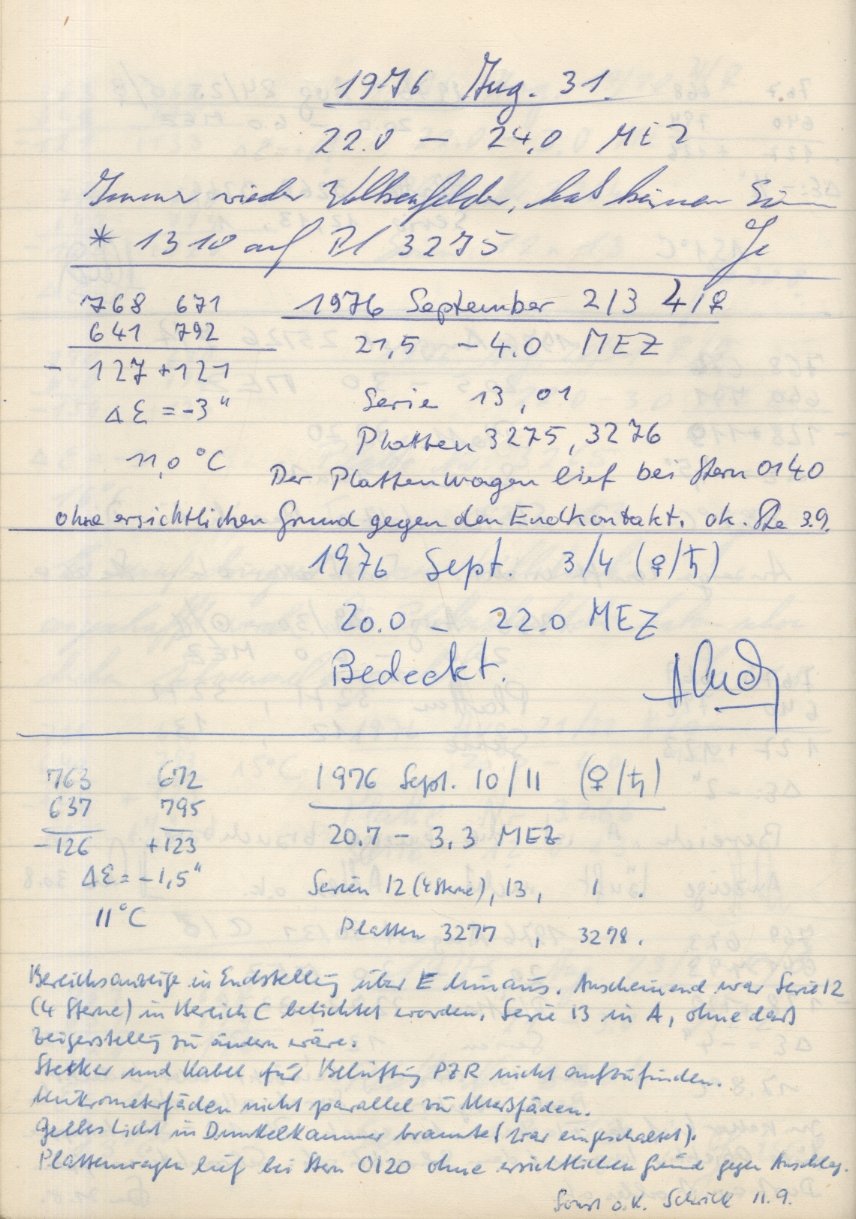 1976 Aug. 31.
22.0 — 24,0 MEZ
Immer wieder Wolkenfelder, hat keinen Sinn
* 1310 auf Pl 3275
768 671 1976 September 2/3 4/♀
641 792 21,5 – 4.0 MEZ
- 127 +121
Serie 13, 01
Δε = -3"
Platten 3275, 3276
11,0 °C Der Plattenwagen lief bei Stern 0140
ohne ersichtlichen Grund gegen den Endkontakt. ok. 3.9.
1976 Sept. 3/4 (♀/♄)
20.0 – 22.0 MEZ
Bedeckt.
763 672 1976 Sept. 10/11 (♀/♄)
637 795 20.7 – 3,3 MEZ
-126 +123
Δε = -1,5" Serien 12 (4 Sterne), 13, 1 .
11°C Platten 3277 , 3278.
Bereichsanzeige in Endstellung über E hinaus. Anscheinend war Serie 12
(4 Sterne) in Bereich C belichtet worden, Serie 13 in A, ohne daß
Zeigerstellg zu ändern wäre.
Stecker und Kabel für Belüftg PZR nicht aufzufinden.
Mikrometerfäden nicht parallel zu Meßfäden.
Gelbes Licht in Dunkelkammer brannte (war eingeschaltet).
Plattenwagen lief bei Stern 0120 ohne ersichtlichen Grund gegen Anschlag.
Sonst o.K. 11.9.